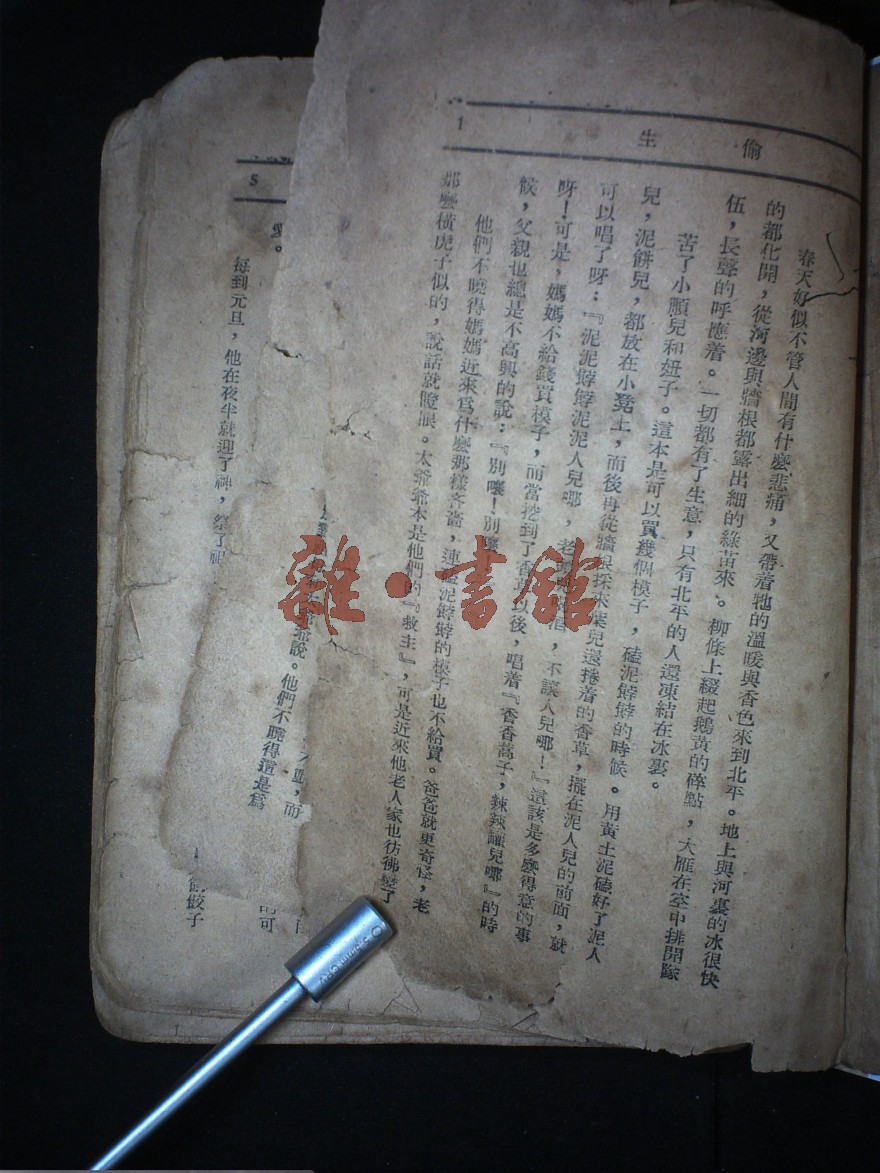 偷生
1
春天好似不管人間有什麼悲痛，又帶着牠的溫暖與香色來到北平。地上與河裏的冰很快
的都化開，從河邊與牆根都露出細的綠苗來。柳條上綴起鵝黃的碎點，大雁在空中排開隊
伍，長聲的呼應着。一切都有了生意，只有北平的人還凍結在冰裏。
苦了小順兒和妞子。這本是可以買幾個模子，磕泥餑餑的時候。用黃土泥磕好了泥人
兒，泥餅兒，都放在小凳上，而後再從牆根採來葉兒還捲着的香草，擺在泥人兒的前面，就
可以唱了呀：『泥泥餑餑泥泥人兒哪，老，不讓人兒哪！』這該是多麼得意的事
呀！可是，媽媽不給錢買模子，而當挖到了香草以後，唱着『香香蒿子，辣辣罐兒哪』的時
候，父親也總是不高興的說：『別嚷！別嚷
他們不曉得媽媽近來爲什麼那樣吝嗇，連磕泥餑餑的模子也不給買。爸爸就更奇怪，老
那麼橫虎子似的，說話就瞪眼。太爺爺本是他們的『救主』，可是近來他老人家也彷彿變了
5
愛。
每到元旦，他在夜半就迎了神，祭了祖
爺說。他們不曉得這是爲
，而
的可
餃子
雜·書館